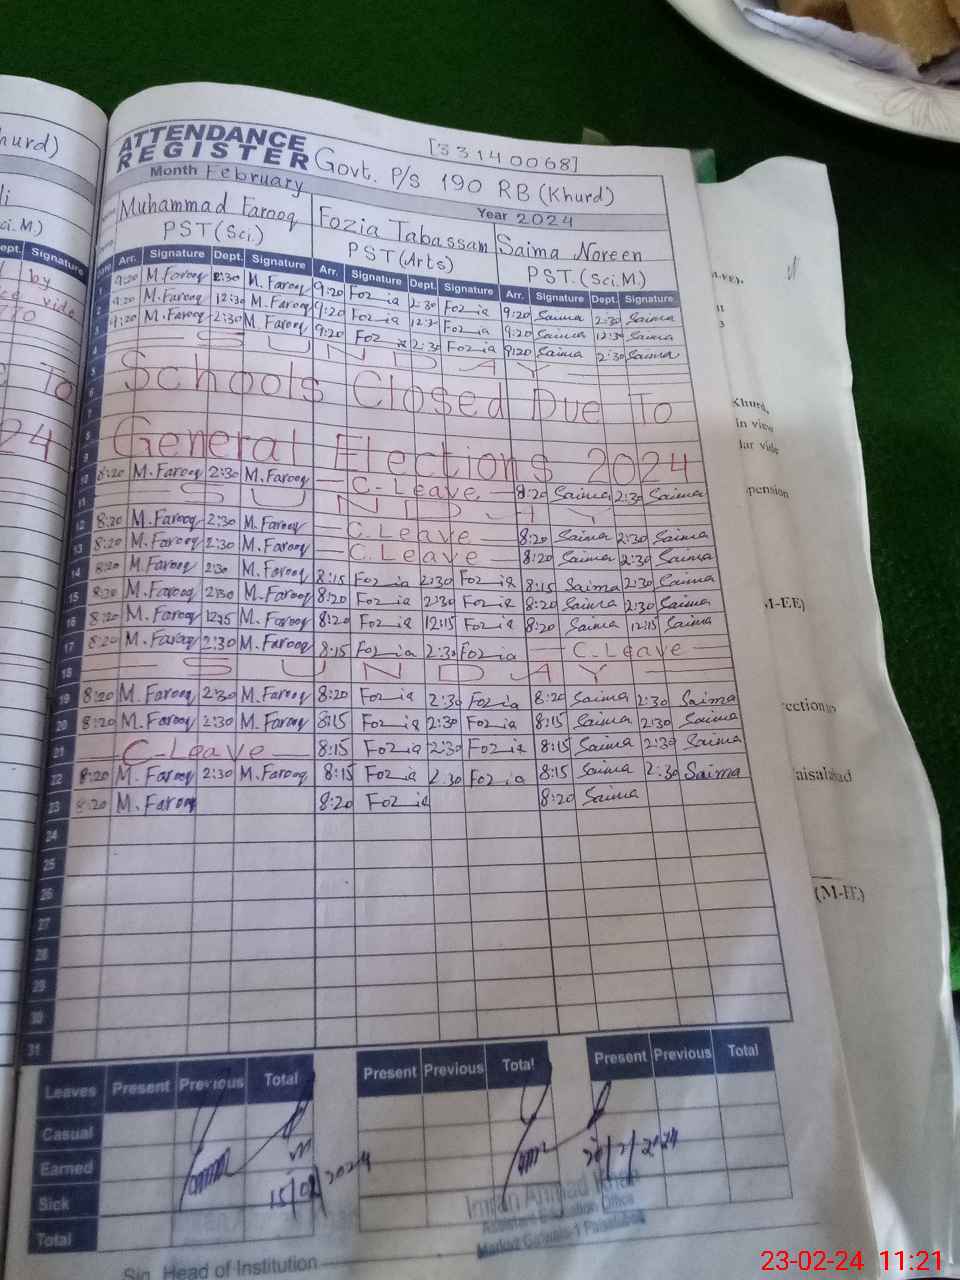 hurd)
li
ci. M.)
ept. Signature
by
vide
To
24
[33140068]
ATTENDANCE
REGISTER
Govt. P/S 190 RB (Khurd)
Month February
Year 2024
Muhammad Farooq Fozia Tabassam Saima Noreen
PST (Sci.) PST (Arts) PST. (Sci.M.)
Arr. Signature Dept. Signature Arr. Signature Dept. Signature Arr. Signature Dept. Signature
1 9:20 M.Farooq 2:30 M. Farooq 9:20 Fozia 2:30 Fozia 9:20 Saima 2:30 Saima
2 9:20 M.Farooq 12:30 M. Farooq 9:20 Fozia Fozia 9:20 Saima 12:30 Saima
3 9:20 M.Farooq 2:30 M. Farooq 9:20 Fozia 2:30 Fozia 9:20 Saima 2:30 Saima
4 SUNDAY
5
6 Schools Closed Due To
7
8 General Elections 2024
9
10 8:20 M.Farooq 2:30 M.Farooq C-Leave. 8:20 Saima 2:30 Saima
11 SUNDAY
12 8:20 M.Farooq 2:30 M.Farooq C.Leave 8:20 Saima 2:30 Saima
13 8:20 M.Farooq 2:30 M.Farooq C.Leave 8:20 Saima 2:30 Saima
14 8:20 M.Farooq 2:30 M.Farooq 8:15 Fozia 2:30 Fozia 8:15 Saima 2:30 Saima
15 8:20 M.Farooq 2:30 M.Farooq 8:20 Fozia 2:30 Fozia 8:20 Saima 2:30 Saima
16 8:20 M.Farooq 12:15 M.Farooq 8:20 Fozia 12:15 Fozia 8:20 Saima 12:15 Saima
17 8:20 M.Farooq 2:30 M.Farooq 8:15 Fozia 2:30 Fozia C.Leave
18 SUNDAY
19 8:20 M.Farooq 2:30 M.Farooq 8:20 Fozia 2:30 Fozia 8:20 Saima 2:30 Saima
20 8:20 M.Farooq 2:30 M.Farooq 8:15 Fozia 2:30 Fozia 8:15 Saima 2:30 Saima
21 C-Leave 8:15 Fozia 2:30 Fozia 8:15 Saima 2:30 Saima
22 8:20 M.Farooq 2:30 M.Farooq 8:15 Fozia 2:30 Fozia 8:15 Saima 2:30 Saima
23 8:20 M.Farooq 8:20 Fozia 8:20 Saima
24
25
26
27
28
29
30
31
Leaves Present Previous Total Present Previous Total Present Previous Total
Casual
Earned
Sick
Total
15/02/2024
20/2/2024
Imran Ahmad Khan
Assistant Education Office
Sig. Head of Institution
Khurd,
in view
lar vide
spension
M-EE)
rection
aisalabad
(M-EE)
23-02-24 11:21